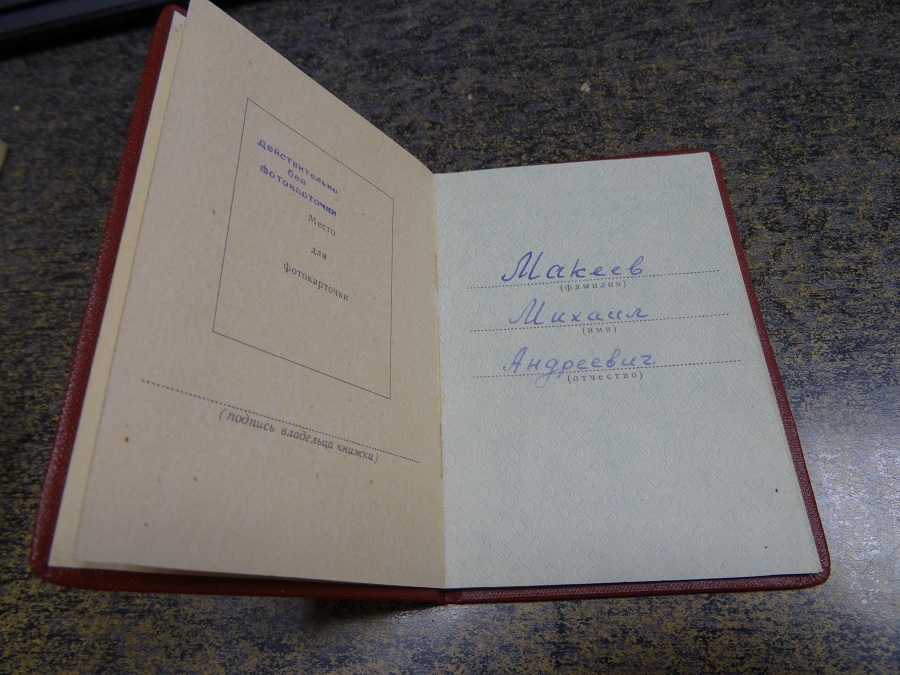 Действительно
без
фотокарточки
Место
для
фотокарточки
(подпись владельца книжки)
Макеев
(фамилия)
Михаил
(имя)
Андреевич.
(отчество)